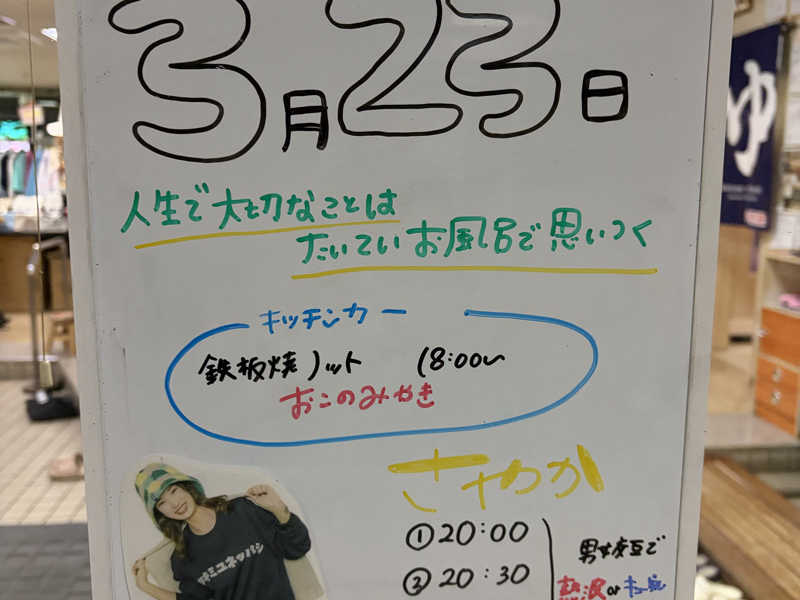 3月23日
ゆ
人生で大切なことは
たいていお風呂で思いつく
キッチンカー
鉄板焼ノット 18:00〜
おこのみやき
さやか
①20:00
②20:30
男女交互で
熱波or